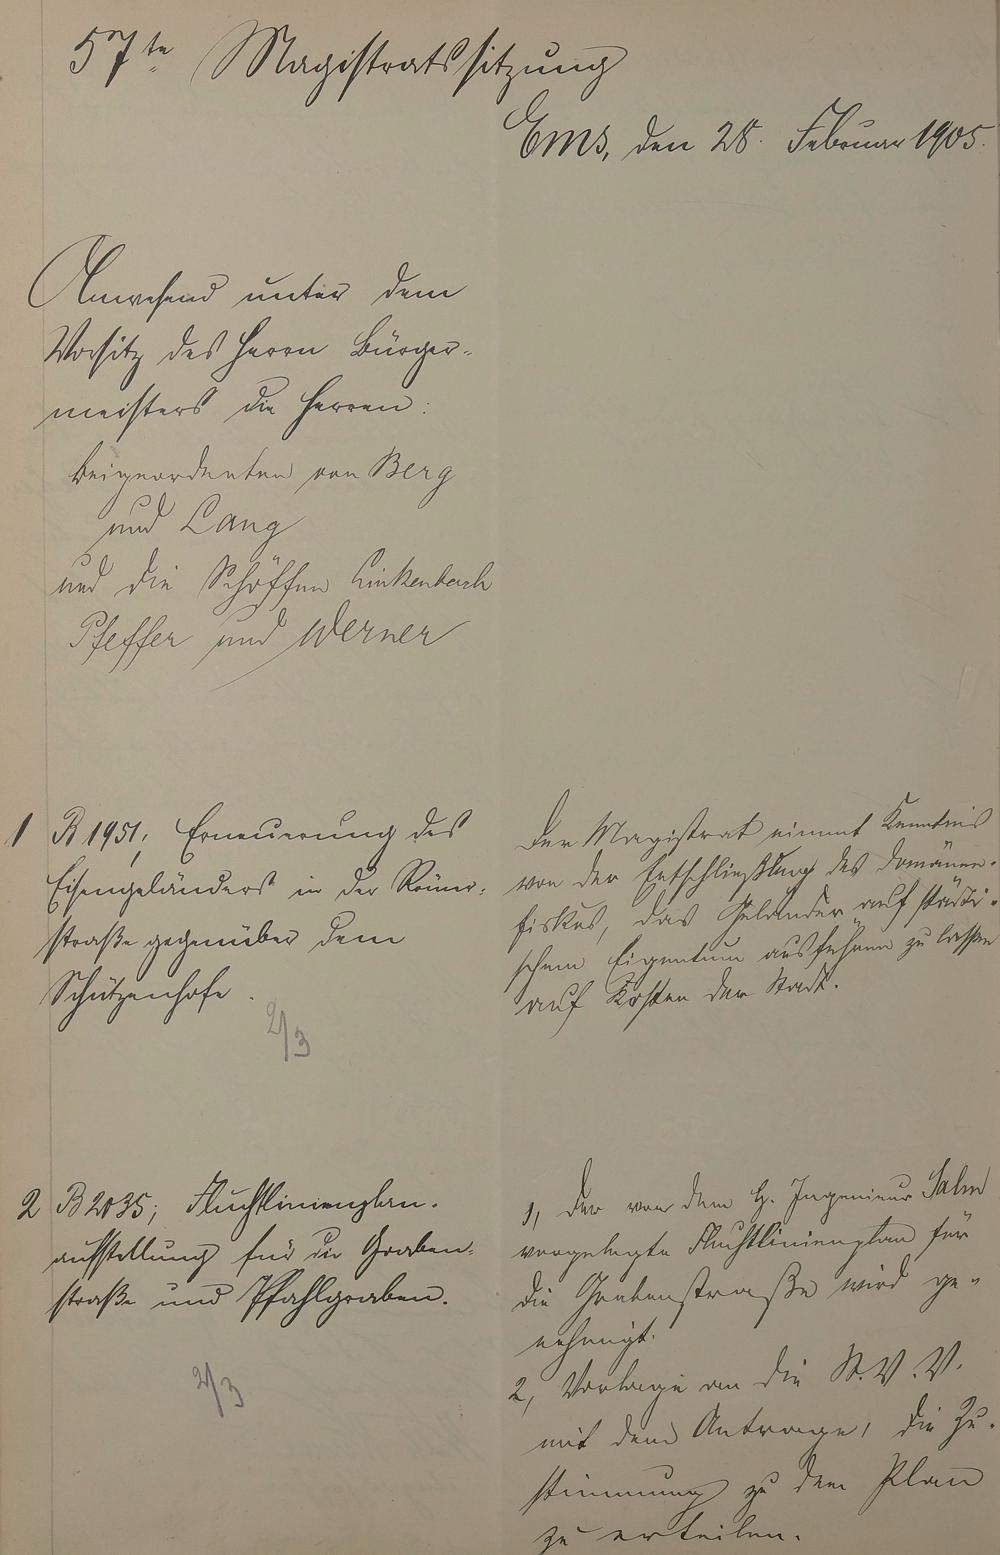 57te Magistratssitzung
Ems, den 28. Februar 1905.
Anwesend unter dem
Vorsitz des Herrn Bürger-
meisters die Herren:
Beigeordneten von Berg
und Lang
und die Schöffen Linkenbach
Pfeffer und Werner
1 B 1951; Erneuerung des
Eisengeländers in der Römer-
straße gegenüber dem
Schützenhofe.
2/3
Der Magistrat nimmt Kenntnis
von der Entschließung des Domänen-
fiskus, das Geländer auf städti-
schem Eigentum ausführen zu lassen
auf Kosten der Stadt.
2 B 2035; Fluchtlinienplan-
aufstellung für die Graben-
straße und Pfahlgraben.
2/3
1, Der von dem H. Ingenieur Salm
vorgelegte Fluchtlinienplan für
die Grabenstraße wird ge-
nehmigt.
2, Vorlage an die St. V. V.
mit dem Antrage, die Zu-
stimmung zu dem Plan
zu erteilen.